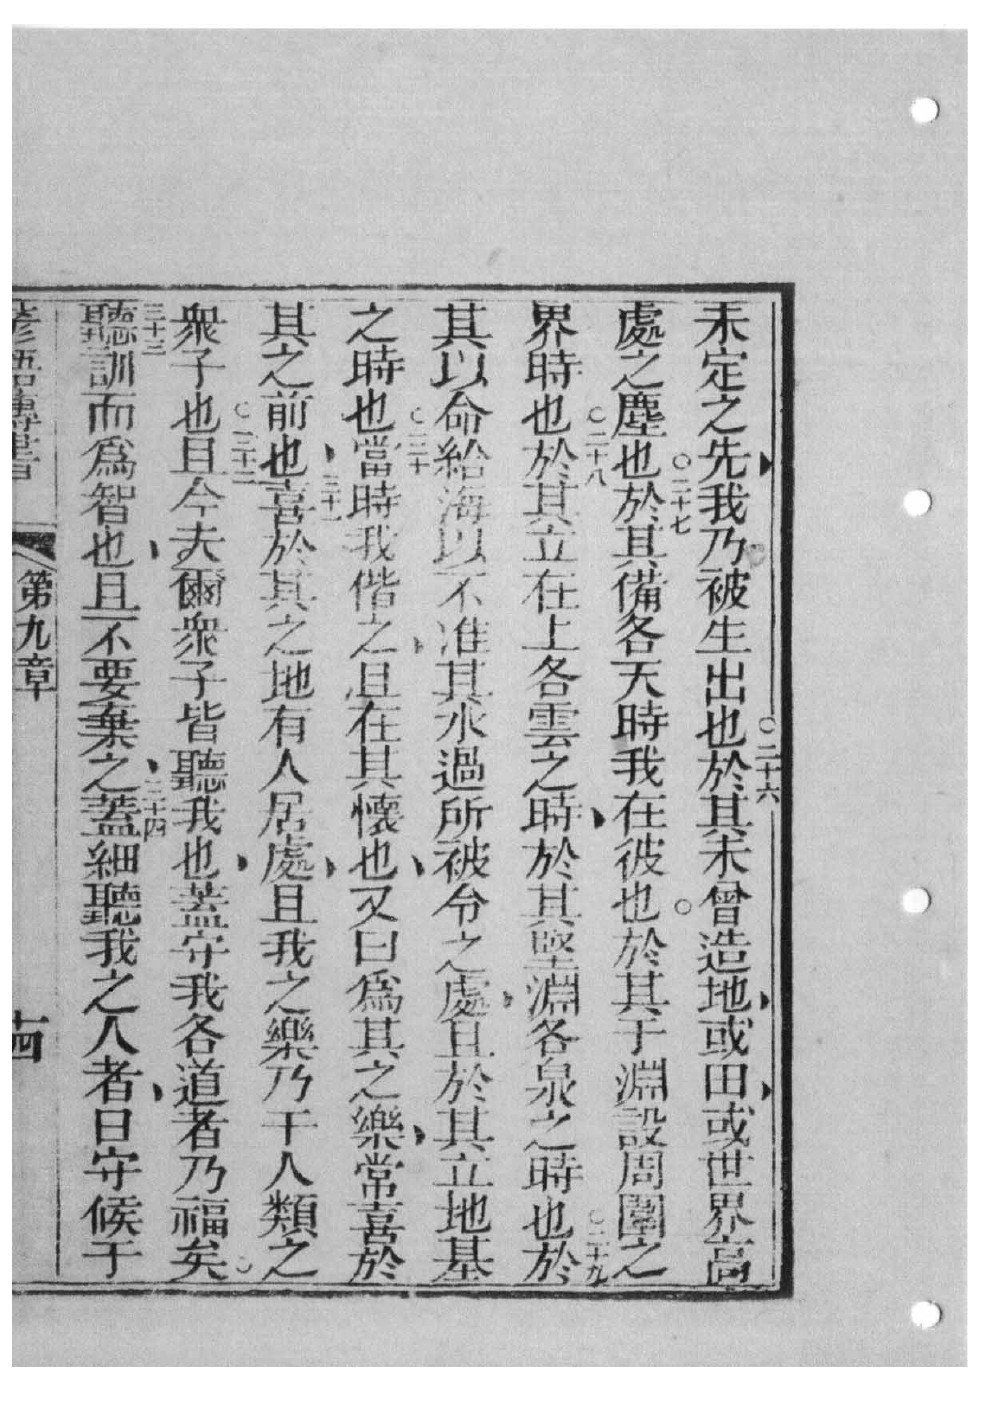 未定之先我乃被生出也於其未曾造地或田或世界高
二十六
處之塵也於其備各天時我在彼也於其于淵設周圍之
二十七
界時也於其立在上各雲之時於其堅淵各泉之時也於
二十八
二十九
其以命給海以不准其水過所被令之處且於其立地基
之時也當時我偕之且在其懷也又曰爲其之樂常喜於
三十
其之前也喜於其之地有人居處且我之樂乃于人類之
三十一
衆子也且今夫爾衆子皆聽我也蓋守我各道者乃福矣
三十二
聽訓而爲智也且不要棄之蓋細聽我之人者日守候于
三十三
三十四
諺語傳書
第九章
十四